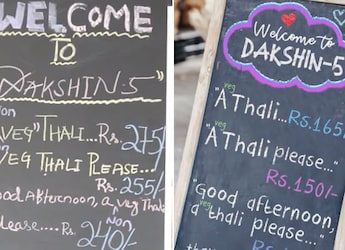 WELCOME
TO
"DAKSHIN-5"
Non
VEG "THALI...RS. 275/
VEG THALI PLEASE...
RS. 255/-
Good Afternoon, a veg Thali
Non
Please.... Rs. 240/-
Welcome to
DAKSHIN-5
veg
"A Thali... Rs.165/
veg
"A Thali please..."
Rs.150/-
"Good afternoon,
veg
a thali please..."